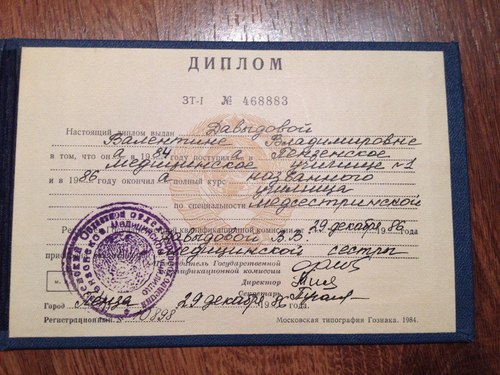 ДИПЛОМ
ЗТ-I № 468883
Настоящий диплом выдан Давыдовой
Валентине Владимировне
в том, что он а в 1984 году поступил а в Пензенское
медицинское училище №1
и в 1986 году окончил а полный курс названного
училища
по специальности медсестринской
Решением Государственной квалификационной комиссии от 29 декабря 1986 года
Давыдовой В.В.
присвоена медицинской сестры
Председатель Государственной
квалификационной комиссии
Директор
Секретарь
Город Пенза 29 декабря 1986 г.
Регистрационный № 10898
Московская типография Гознака. 1984.